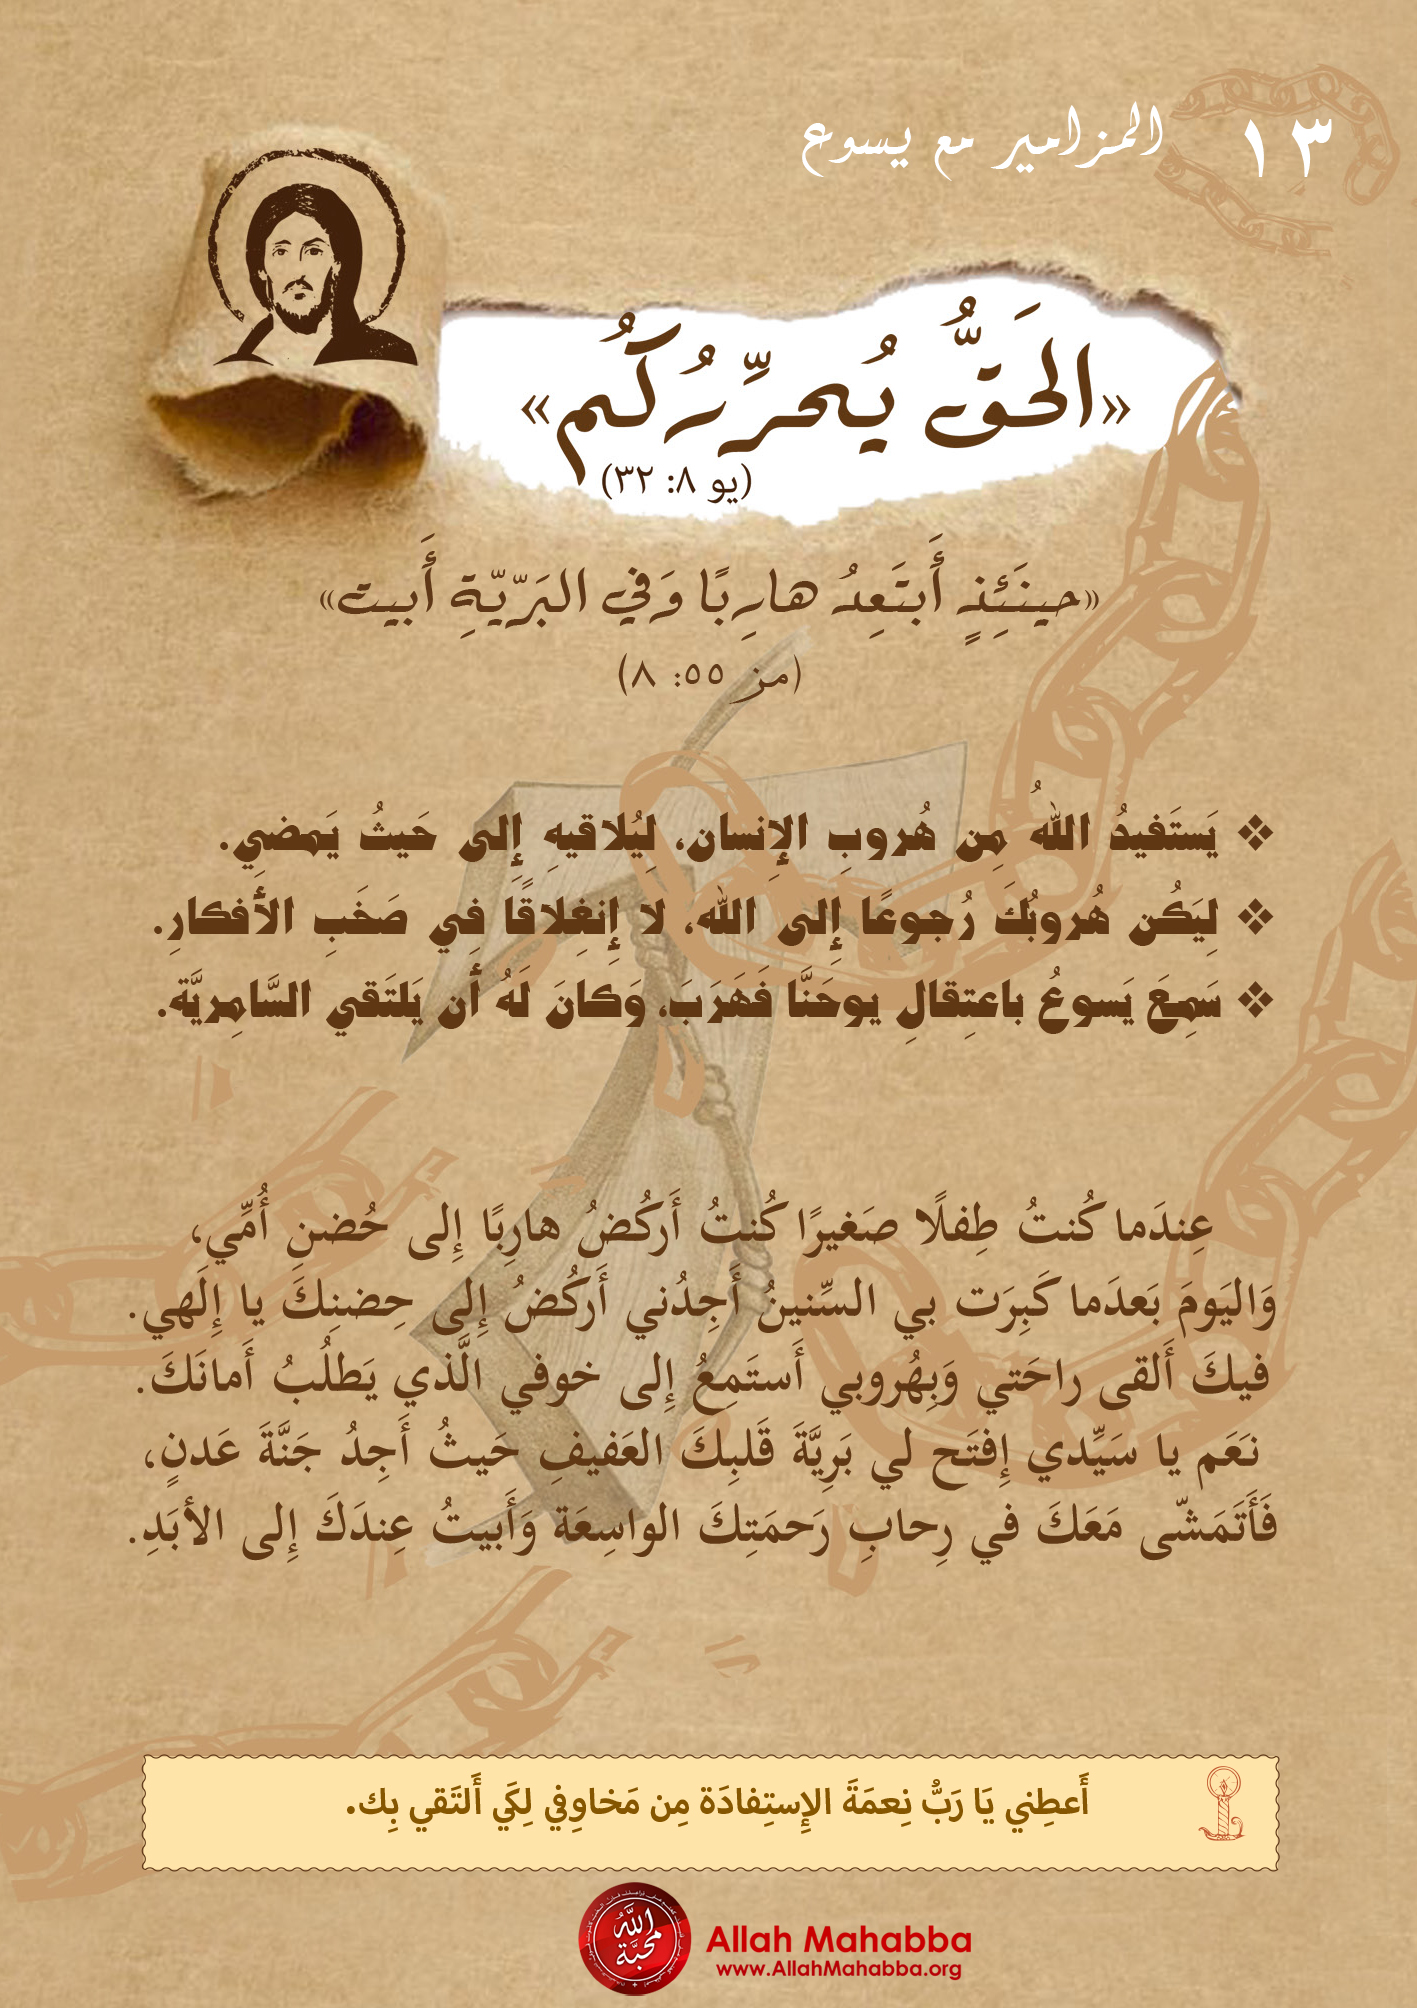 ١٣ المزامير مع يسوع
«الحَقُّ يُحرِّرُكُم»
(يو ٨: ٣٢)
«حينَئِذٍ أَبتَعِدُ هارِبًا وَفي البَرّيّةِ أَبيت»
(مز ٥٥: ٨)
❖ يَستَفيدُ اللهُ مِن هُروبِ الإِنسان، لِيُلاقيهِ إِلى حَيثُ يَمضي.
❖ لِيَكُن هُروبُكَ رُجوعًا إِلى الله، لا إِنغِلاقًا فِي صَخَبِ الأَفكارِ.
❖ سَمِعَ يَسوعُ باعتِقالِ يوحَنَّا فَهَرَبَ، وَكانَ لَهُ أَن يَلتَقي السَّامِريَّة.
عِندَما كُنتُ طِفلًا صَغيرًا كُنتُ أَركُضُ هارِبًا إِلى حُضنِ أُمِّي،
وَاليَومَ بَعدَما كَبِرَت بي السِّنينُ أَجِدُني أَركُضُ إِلى حِضنِكَ يا إِلَهي.
فيكَ أَلقى راحَتي وَبِهُروبي أَستَمِعُ إِلى خوفي الَّذي يَطلُبُ أَمانَكَ.
نَعَم يا سَيِّدي إِفتَح لي بَرِيَّةَ قَلبِكَ العَفيفِ حَيثُ أَجِدُ جَنَّةَ عَدنٍ،
فَأَتَمَشّى مَعَكَ في رِحابِ رَحمَتِكَ الواسِعَة وَأَبيتُ عِندَكَ إِلى الأبَدِ.
أَعطِني يَا رَبُّ نِعمَةَ الإِستِفادَة مِن مَخاوِفي لِكَي أَلتَقي بِك.
اللهُ محبّة
Allah Mahabba
www.AllahMahabba.org